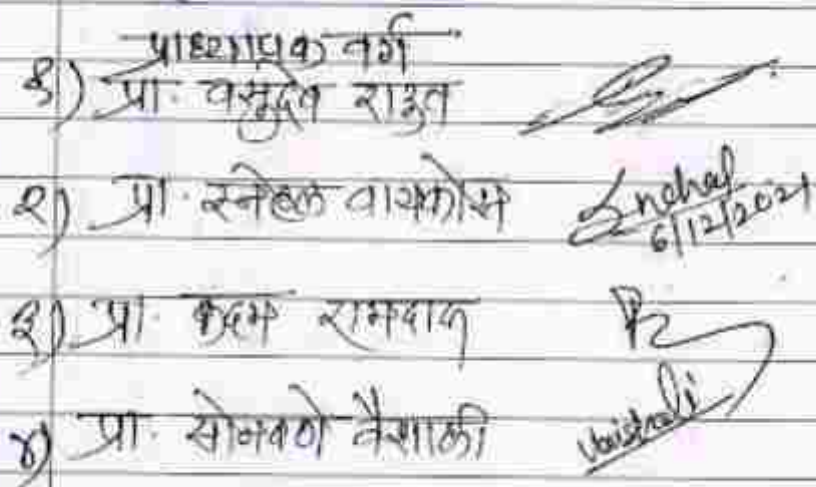 प्राध्यापक वर्ग
१) प्रा. वसुदेव राऊत
२) प्रा. स्नेहल वायकोस Snehal 6/12/2021
३) प्रा. कदम रामदास
४) प्रा. सोनवणे वैशाली Vaishali